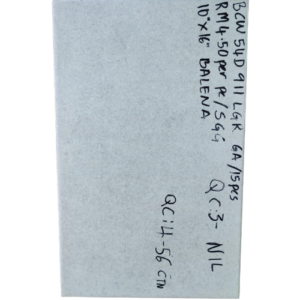 BCW 54D 911 LGK 6A/15pcs
RM4.50 per pc/SGG
10"x16" BALENA
QC:3- NIL
QC:4-56 CTN